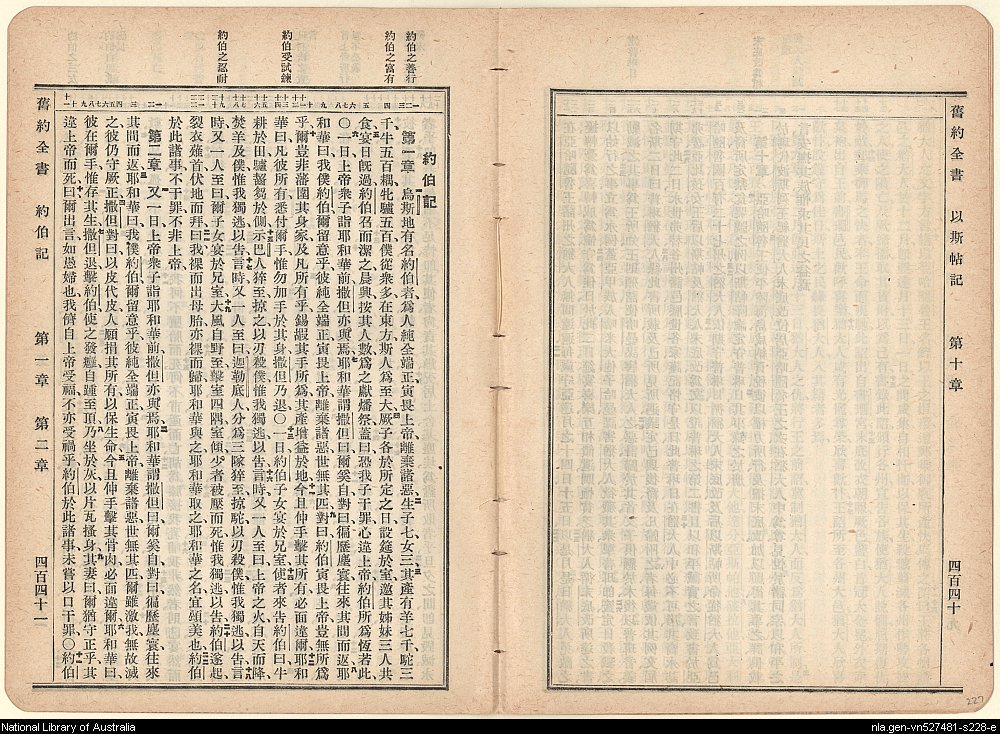 舊約全書 以斯帖記 第十章 四百四十九
約伯之善行
約伯之富有
約伯受試鍊
約伯之忍耐
約伯記
第一章 烏斯地有名約伯者爲人純全端正寅畏上帝離棄諸惡生子七女三其產有羊七千駝三
千牛五百耦牝驢五百僕從衆多在東方斯人爲至大厥子各於所定之日設筵於室邀其姊妹三人共
食宴日旣過約伯召而潔之晨興按其人數爲之獻燔祭蓋曰恐我子干罪心違上帝約伯所爲恆若此
〇一日上帝衆子詣耶和華前撒但亦與焉耶和華謂撒但曰爾奚自對曰徧歷塵寰往來其間而返耶
和華曰我僕約伯爾留意乎彼純全端正寅畏上帝離棄諸惡世無其匹對曰約伯寅畏上帝豈無所爲
乎爾豈非藩圍其身家及凡所有乎錫嘏其手所爲其產增益於地今且伸手擊其所有必面違爾耶和
華曰凡彼所有悉付爾手惟勿加手於其身撒但乃退〇一日約伯子女宴於兄室使者來告約伯曰牛
耕於田驢齧芻於側示巴人猝至掠之以刃殺僕惟我獨逃以告言時又一人至曰上帝之火自天而降
焚羊及僕惟我獨逃以告言時又一人至曰迦勒底人分爲三隊猝至掠駝以刃殺僕惟我獨逃以告言
時又一人至曰爾子女宴於兄室大風自野至擊室四隅室傾少者被壓而死惟我獨逃以告約伯遂起
裂衣薙首伏地而拜曰我裸而出母胎亦裸而歸耶和華與之耶和華取之耶和華之名宜頌美也約伯
於此諸事不干罪不非上帝
第二章 又一日上帝衆子詣耶和華前撒但亦與焉耶和華謂撒但曰爾奚自對曰徧歷塵寰往來
其間而返耶和華曰我僕約伯爾留意乎彼純全端正寅畏上帝離棄諸惡世無其匹爾雖激我無故滅
之彼仍守厥正撒但對曰以皮代皮人願捐其所有以保生命今且伸手擊其骨肉必面違爾耶和華曰
彼在爾手惟存其生撒但退擊約伯使之發癰自踵至頂乃坐於灰以片瓦搔身其妻曰爾猶守正乎其
違上帝而死曰爾出言如愚婦也我儕自上帝受福不亦受禍乎約伯於此諸事未嘗以口干罪〇約伯
舊約全書 約伯記 第一章 第二章 四百四十一
227
National Library of Australia
nla.gen-vn527481-s228-e